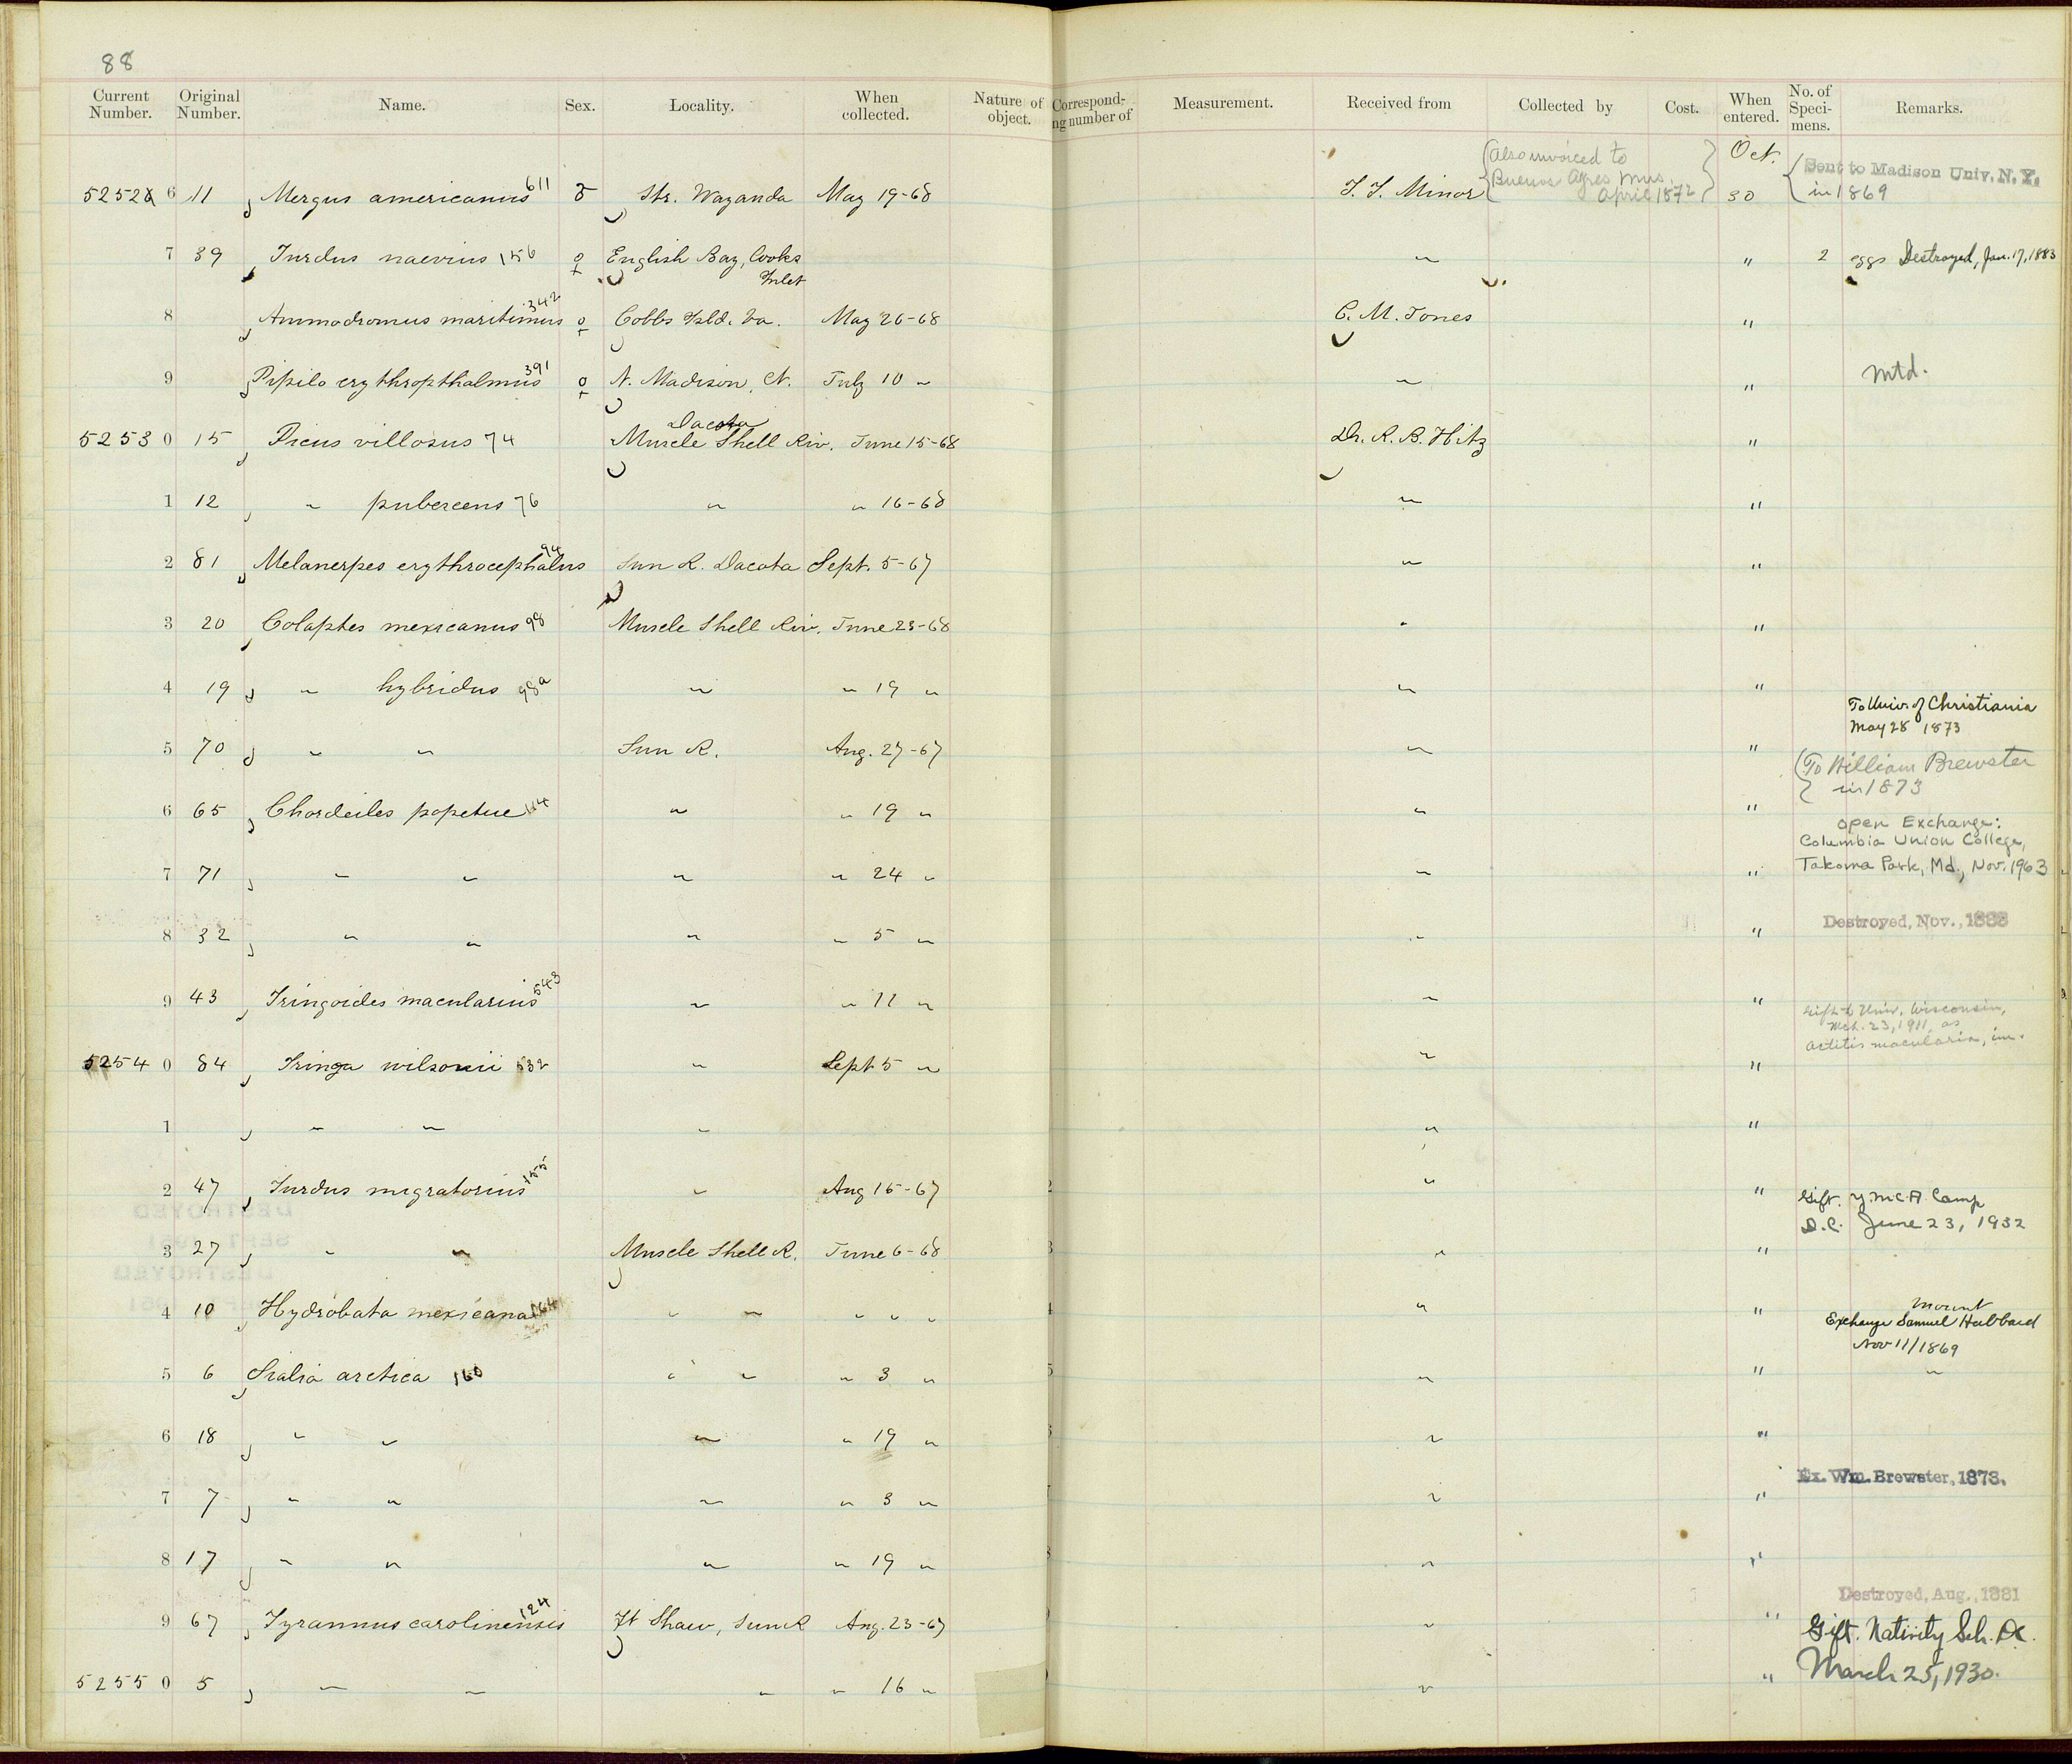 88
Current Number. Original Number. Name. Sex. Locality. When collected. Nature of object. Correspond-ng number of Measurement. Received from Collected by Cost. When entered. No. of Speci-mens. Remarks.
5252 6 11 Mergus americanus 611 Str. Wayanda May 19-68 T. T. Minor {Also invoiced to Buenos Ayres Mus. April 1872} Oct. 30 (Sent to Madison Univ. N. Y. in 1869
7 39 Turdus naevius 156 ♀ English Bay, Cooks Inlet " " 2 eggs Destroyed, Jan. 17, 1883
8 Ammodromus maritimus 342 ♀ Cobbs Isld. Va. May 26-68 C. M. Jones "
9 Pipilo erythropthalmus 391 ♀ N. Madison, Ct. July 10 " " " Mtd.
5253 0 15 Picus villosus 74 Dacota Muscle Shell Riv. June 15-68 Dr. R. B. Hitz "
1 12 " pubescens 76 " " 16-68 " "
2 81 Melanerpes erythrocephalus 94 Sun R. Dacota Sept. 5-67 " "
3 20 Colaptes mexicanus 98 Muscle Shell Riv. June 23-68 " "
4 19 " hybridus 98a " " 19 " " "
To Univ. of Christiania May 28 1873
5 70 " " Sun R. Aug. 27-67 " "
(To William Brewster in 1873
6 65 Chordeiles popetue 114 " " 19 " " "
Open Exchange:
Columbia Union College,
7 71 " " " " 24 " " " Takoma Park, Md., Nov. 1963
8 32 " " " " 5 " " " Destroyed, Nov., 1888
9 43 Tringoides macularius 543 " " 11 " " "
Gift to Univ. Wisconsin,
Mch. 23, 1911, as
Actitis macularia, im.
5254 0 84 Tringa wilsonii 532 " Sept 5 " " "
1 " " " " "
2 47 Turdus migratorius 155 " Aug 15-67 " " Gift. Y.M.C.A. Camp
D.C. June 23, 1932
3 27 " " Muscle Shell R. June 6-68 " "
4 10 Hydrobata mexicana 164 " " " " " " " Mount
Exchange Samuel Hubbard
Nov 11/1869
5 6 Sialia arctica 160 " " " 3 " " " "
6 18 " " " " 19 " " "
Ex. Wm. Brewster, 1873.
7 7 " " " " 3 " " "
8 17 " " " " 19 " " "
Destroyed, Aug., 1881
9 67 Tyrannus carolinensis 124 Ft Shaw, Sun R Aug. 23-67 " " Gift. Nativity Sch. DC.
5255 0 5 " " " " 16 " " " March 25, 1930.